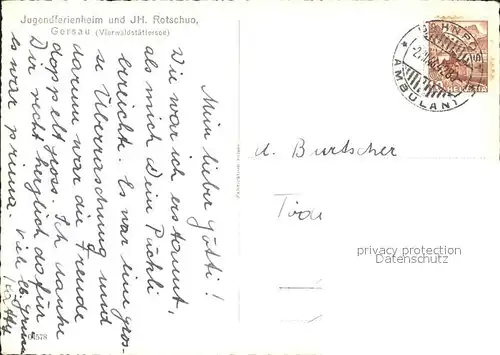 Jugendferienheim und JH. Rotschuo,
Gersau (Vierwaldstättersee)
Mein lieber Götti!
Wie war ich erstaunt,
als mich Dein Päckli
erreichte. Es war eine gros-
se Überraschung und
darum war die Freude
doppelt gross. Ich danke
Dir recht herzlich dafür
es war prima. Viele lb. Grüsse
BAHNPOST
AMBULANT
HELVETIA
U. Burtscher
privacy protection
Datenschutz
04578